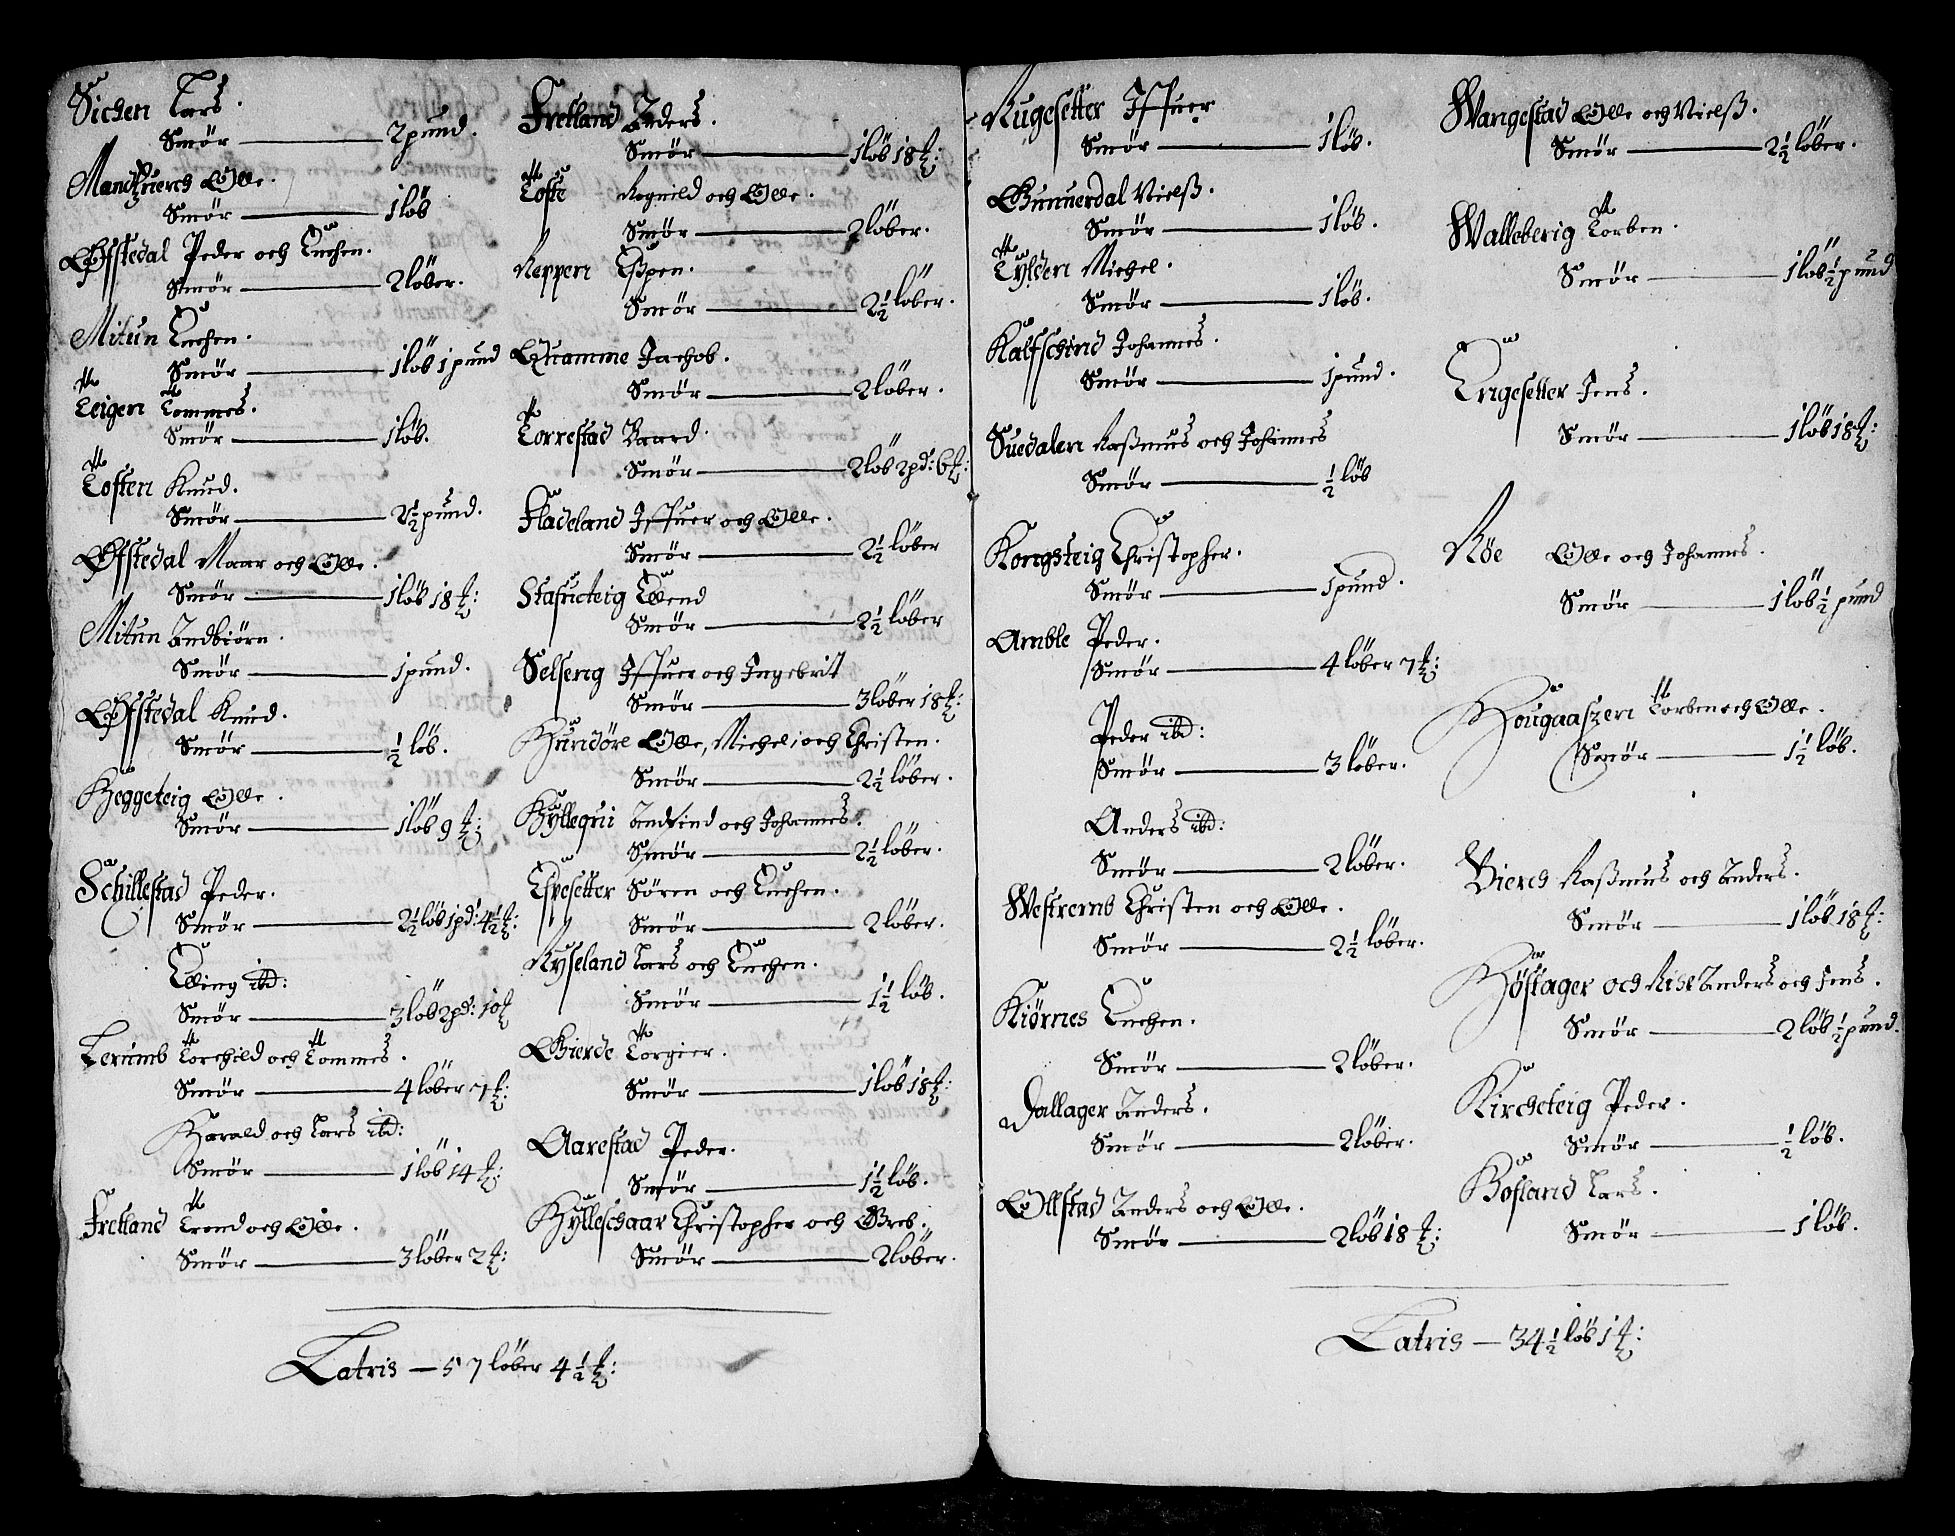 Sichen Lars.
Smör — 2 pund.
Mandzuerch Olle.
Smör — 1 löb
Øffstedal Peder och Euchen.
Smör — 2 löber.
Mitun Euchen.
Smör — 1 löb 1 pund
Teigen Tommes.
Smör — 1 löb.
Toften Knud.
Smör — 2½ pund.
Øffstedal Maar och Olle.
Smör — 1 löb 18 ℔:
Mitun Andbiörn.
Smör — 1 pund.
Øffstedal Knud.
Smör — ½ löb.
Heggeteig Olle.
Smör — 1 löb 9 ℔:
Schillestad Peder.
Smör — 2½ löb 1 pd: 4½ ℔:
Elling ibd:
Smör — 3 löb 2 pd: 10 ℔
Lerumb Torchild och Tommes.
Smör — 4 löber 7 ℔:
Harald och Lars ibd:
Smör — 1 löb 14 ℔:
Fretland Trond och Olle.
Smör — 3 löber 2 ℔:
Fretland Anders.
Smör — 1 löb 18 ℔:
Tofte Rognild och Olle.
Smör — 2 löber.
Reppen Eßpen.
Smör — 2½ löber.
Quamme Jachob.
Smör — 2 löber.
Torrestad Baard.
Smör — 2 löb 2 pd: 6 ℔:
Fladeland Iffuer och Olle.
Smör — 2½ löber
Stafücteig Ellend
Smör — 2½ löber
Selseng Iffuer och Ingebrit
Smör — 3 löber 18 ℔:
Hundöre Olle, Michel, och Christen.
Smör — 2½ löber.
Hyllegrii Andfind och Johannes.
Smör — 2½ löber.
Espesetter Sören och Euchen.
Smör — 2 löber.
Ryseland Lars och Euchen.
Smör — 1½ löb.
Gierde Torgier.
Smör — 1 löb 18 ℔:
Aarestad Peder.
Smör — 1½ löb.
Hylleschaar Christopher och Breb.
Smör — 2 löber.
Latris — 57 löber 4½ ℔:
Rugesetter Iffuer
Smör — 1 löb.
Gunuerdal Nielß.
Smör — 1 löb.
Tylden Michel.
Smör — 1 löb.
Kalfschind Johannes.
Smör — 1 pund.
Suedalen Raßmus och Johannes
Smör — ½ löb
Kongsteig Christopher.
Smör — 1 pund.
Amble Peder.
Smör — 4 löber 7 ℔:
Peder ibd:
Smör — 3 löber.
Anders ibd:
Smör — 2 löber.
Westremb Christen och Olle.
Smör — 2½ löber.
Kiörnes Euchen.
Smör — 2 löber.
Dallager Anders.
Smör — 2 löber.
Ollstad Anders och Olle.
Smör — 2 löb 18 ℔:
Wangestad Olle och Nielß.
Smör — 2½ löber.
Walleberig Torben.
Smör — 1 löb ½ pund
Engesetter Jens.
Smör — 1 löb 18 ℔:
Röe Olle och Johannes.
Smör — 1 löb ½ pund
Hougaaszen Torben och Olle.
Smör — 1½ löb.
Bierch Raßmus och Anders.
Smör — 1 löb 18 ℔:
Höstager och Rise Anders och Jens.
Smör — 2 löb ½ pund.
Kircheteig Peder.
Smör — ½ löb.
Bosland Lars.
Smör — 1 löb.
Latris — 34½ löb 1 ℔: